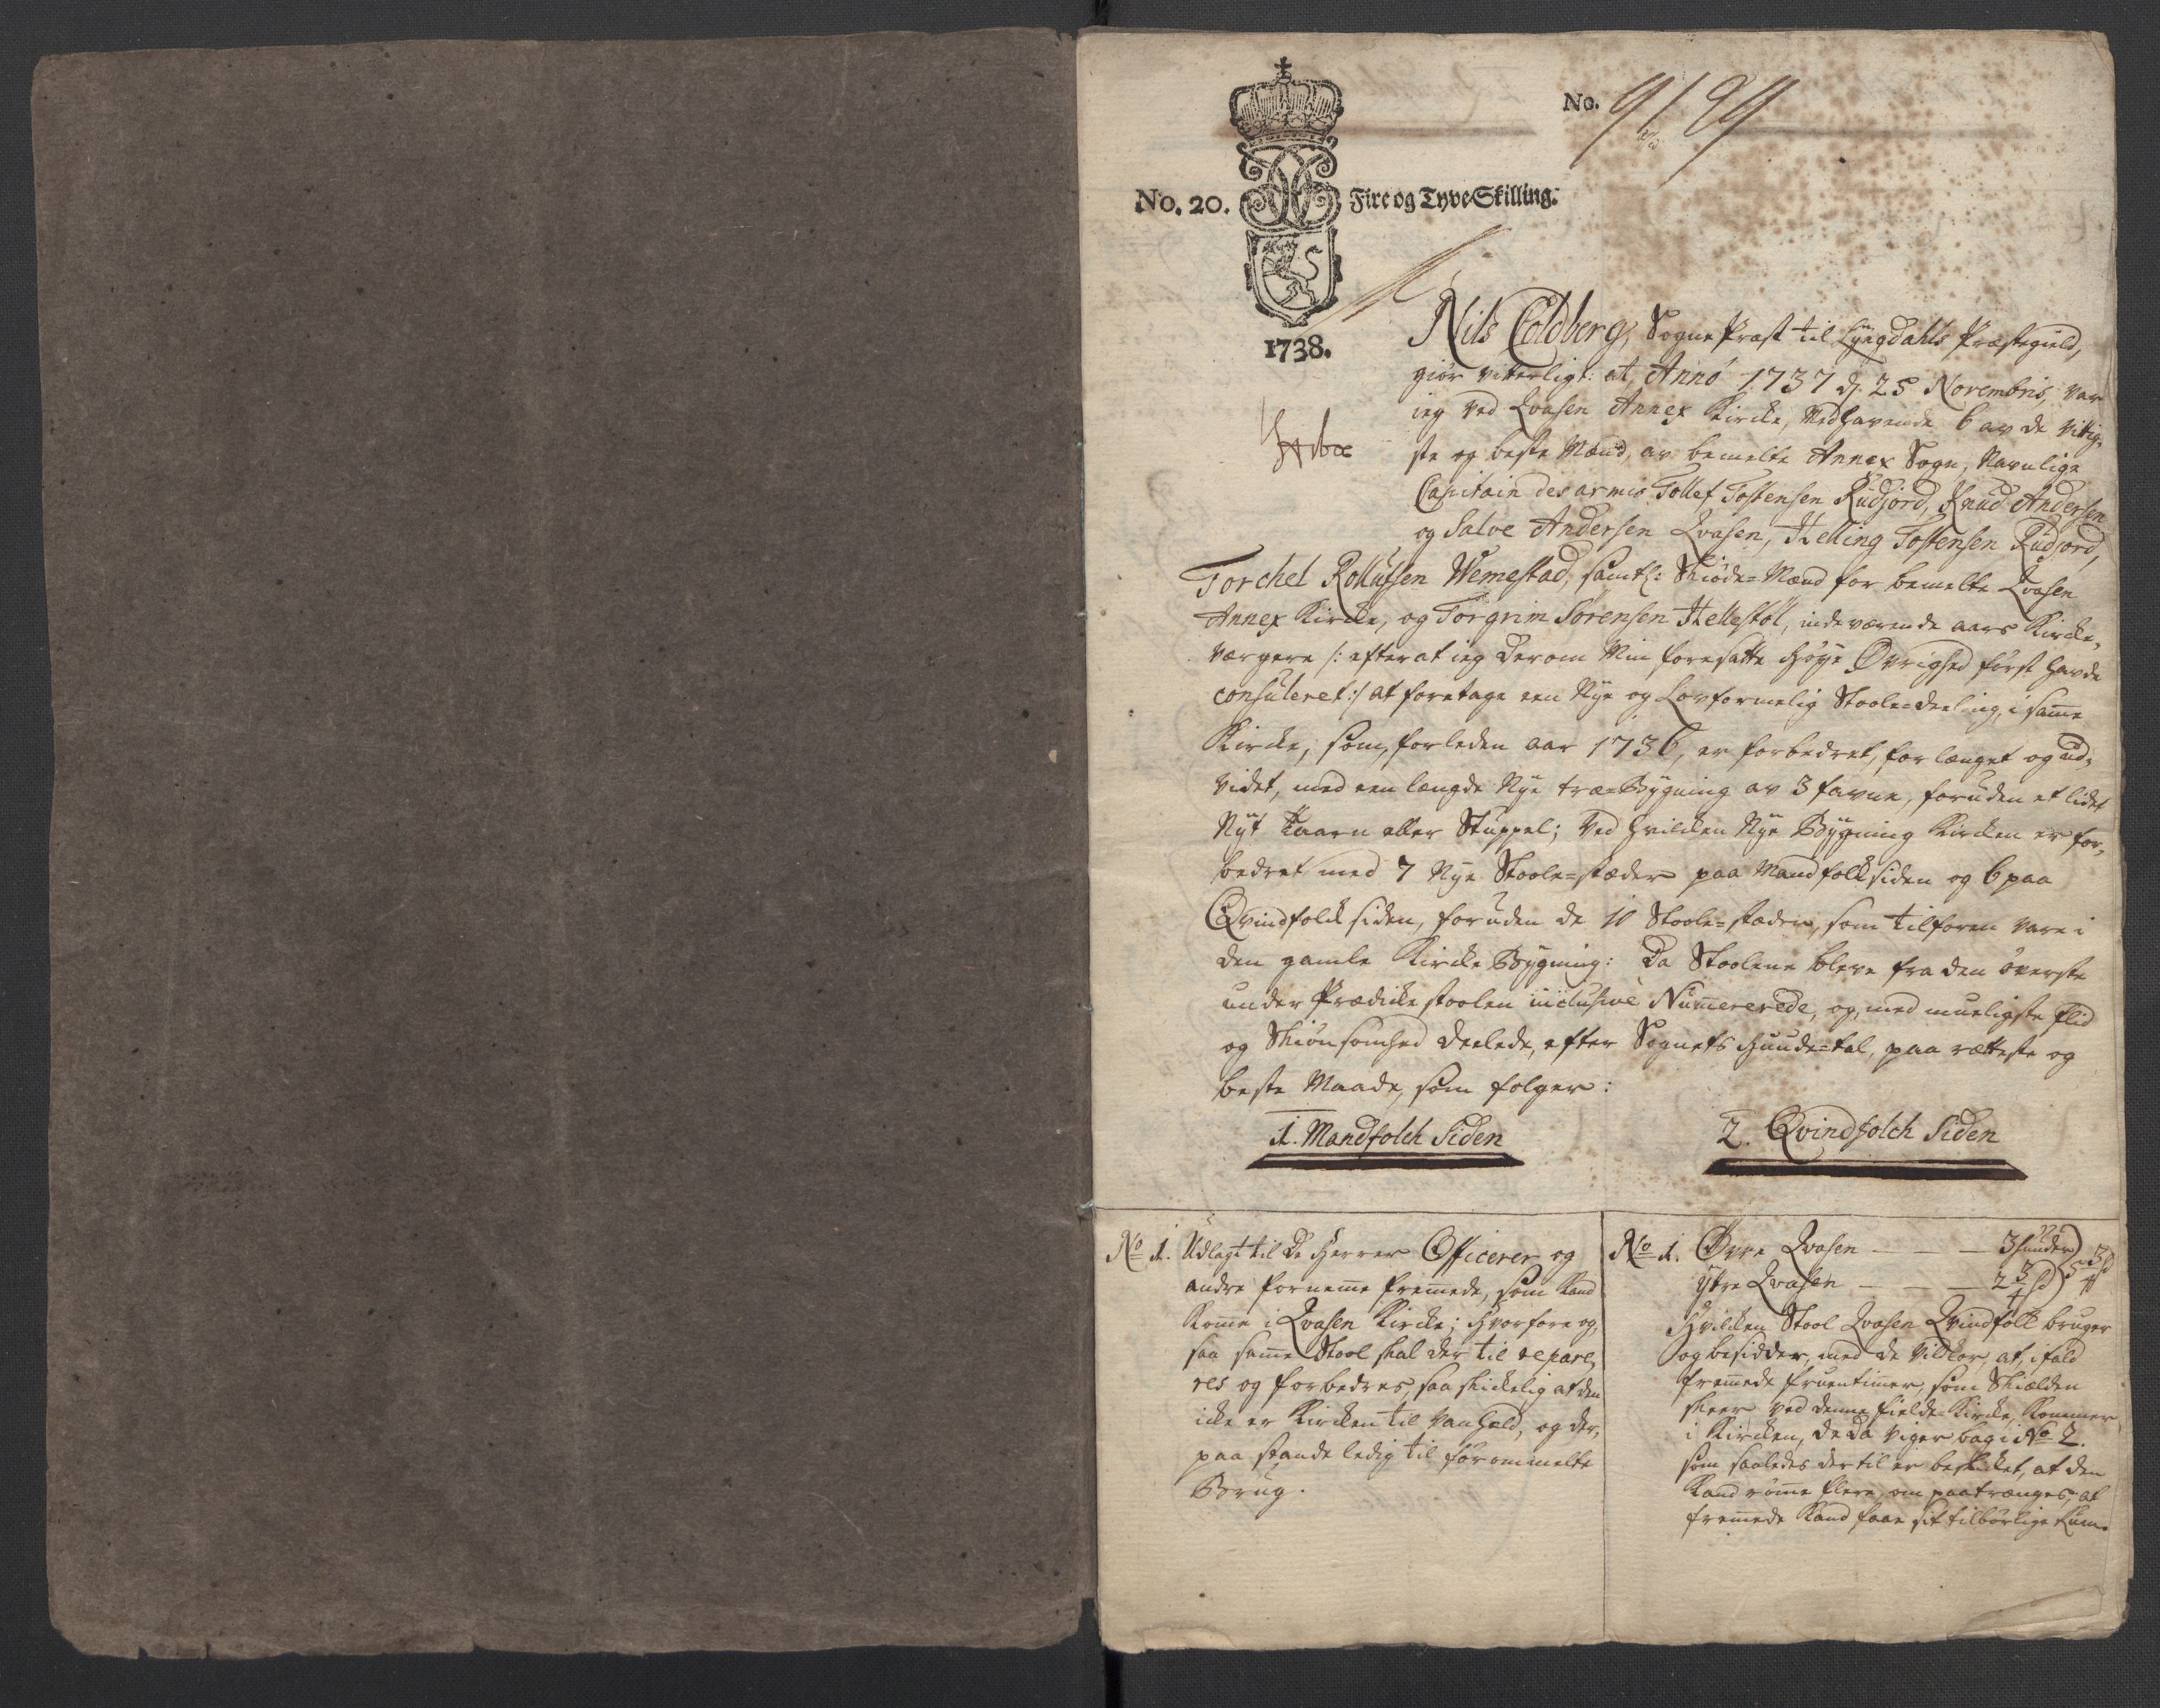 No. 9184
No. 20. Fire og Tyve Skilling.
1738.
Nils Coldberg, Sogne Præst til Lyngdahls Præstegield,
giør vitterligt: at Anno 1737 d. 25 Novembris, var
ieg ved Qvasen Annex Kircke, Medhavende 6 av de vittig-
ste og beste Mænd, av bemelte Annex Sogn, Navnlige
Capitain des armis Tollef Tostensen Rudjord, Knud Andersen
og Salve Andersen Qvasen, Helling Tostensen Rudjord,
Torchel Rollufsen Wemestad, samtl: Skiøde-Mænd for bemelte Qvasen
Annex Kircke, og Torgrim Sørensen Hellestøl, indeværende aars Kircke-
værgere /: efter at ieg derom Min foresatte Høye Øvrighed først havde
consuleret :/ at foretage een Nye og Lovformelig Stoole-deeling, i same
Kircke, som, forleden aar 1736, er forbedret, for længet og ud-
videt, med een længde Nye træ-Bygning av 3 favne, foruden et lidet
Nyt Taarn eller Stuppel; ved hvilcken Nye Bygning Kircken er for-
bedret med 7 Nye Stoole-stæder paa Mandfolck siden og 6 paa
Qvindfolck siden, foruden de 10 Stoole-stæder, som tilforen vare i
den gamle Kircke Bygning: Da Stoolene bleve fra den øverste
under Prædicke stoolen inclusive Numererede, og, med mueligste flid
og Skiønsomhed deelede, efter Sognets Hunde-tal, paa rætteste og
beste Maade, som følger:
1. Mandfolch Siden
2. Qvindfolch Siden
No 1. Udlagt til De Herrer Officerer og
andre forneme fremede, som kand
kome i Qvasen Kircke; Hvorfore og-
saa same Stool skal der til repare-
res og forbedres, saa skickelig at den
icke er Kircken til Vanheld, og der-
paa stande ledig til forommelte
Brug.
No 1. Øvre Qvasen — — 3 hunder
Ytre Qvasen — — 2 3/4 hd 5 3/4 hd
Hvilcken Stool Qvasen Qvindfolck bruger
og besidder, med de vilckor, at, ifald
fremede fruentimer, som Skielden
skeer ved denne field-Kircke, kommer
i Kircken, de da viger bag i No 2.
som saaledes dertil er beskicket, at den
kand røme flere, om paatrænges, at
fremede kand faae sit tilbørlige Rum.